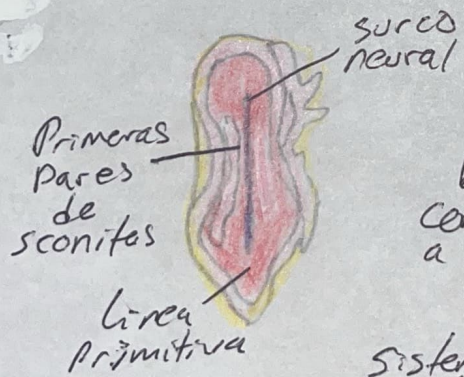 surco
neural
Primeras
Pares
de
sconitas
linea
primitiva
a
sister